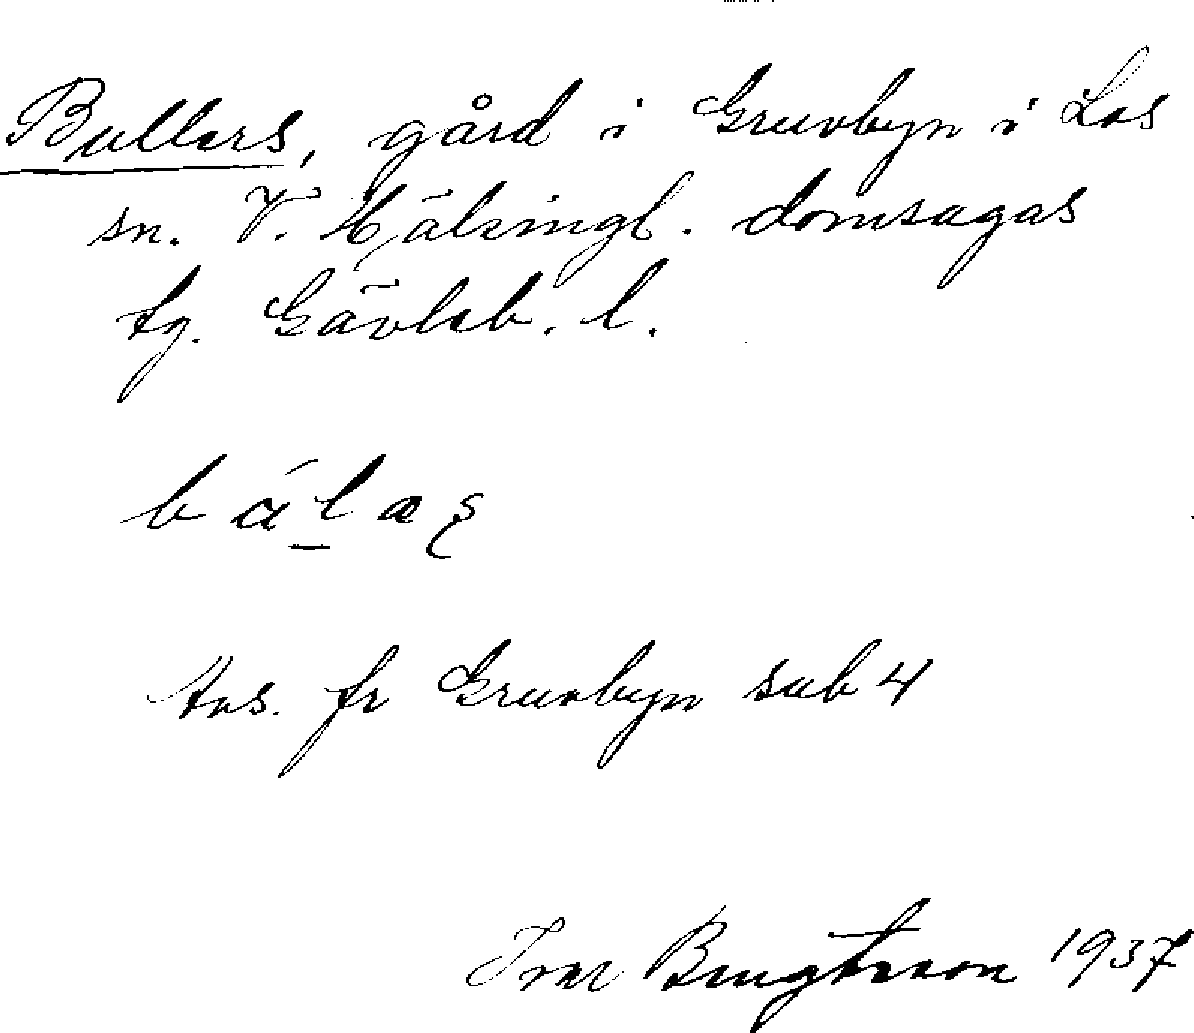 Bullers, gård i Gruvbyn i Los
sn. V. Hälsingl. domsagas
tg. Gävleb. l.
Ans. fr Gruvbyn sub 4
Ivar Bengtsson 1937